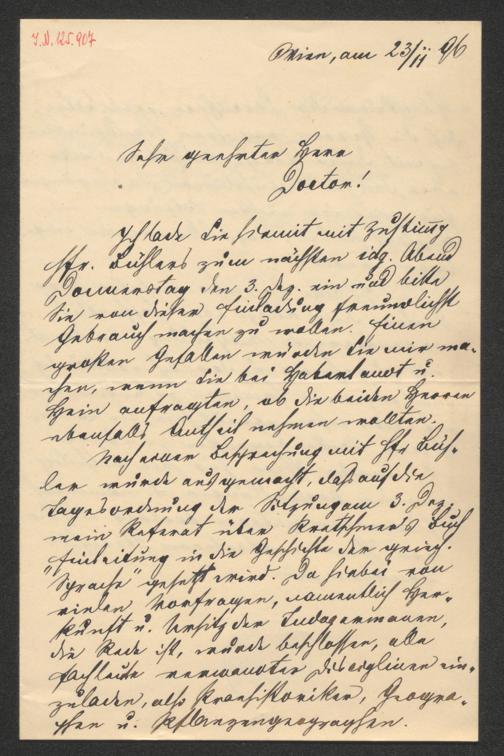 I.N. 125.907
Wien, am 23/11 96
Sehr geehrter Herr
Doctor!
Ich lade Sie hiermit mit Zustimg
Hfr. Bühlers zum nächsten idg. Abend
Donnerstag den 3. Dez. ein und bitte
Sie von dieser Einladung freundlichst
Gebrauch machen zu wollen. Einen
großen Gefallen würden Sie mir ma-
chen, wenn Sie bei Haberlandt u.
Hein anfragten, ob die beiden Herren
ebenfalls Antheil nehmen wollten.
Nach einer Besprechung mit Hfr Büh-
ler wurde ausgemacht, daß auf die
Tagesordnung der Sitzung am 3. Dez.
mein Referat über Kretschmers Buch
„Einleitung in die Geschichte der griech.
Sprache gesetzt wird. Da hiebei von
vielen Vorfragen, namentlich Her-
kunft u. Ursitz der Indogermanen,
die Rede ist, wurde beschlossen, alle
Fachleute verwandter Disciplinen ein-
zuladen, also Praehistoriker, Geogra-
phen u. Pflanzengeographen.